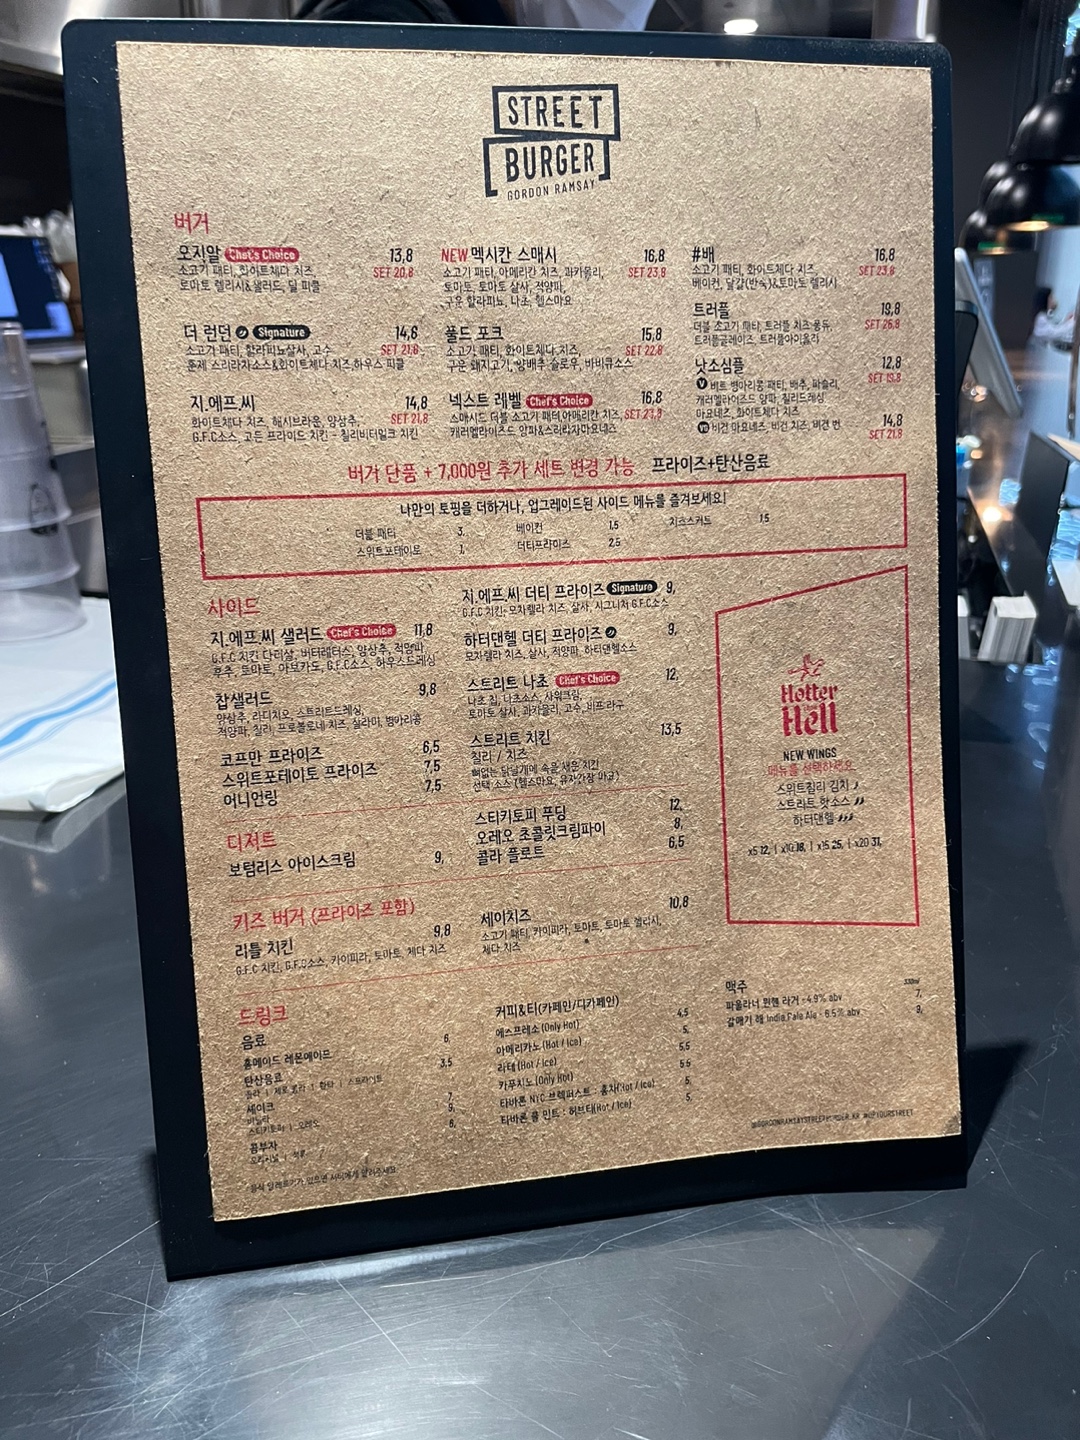 STREET
BURGER
GORDON RAMSAY
버거
오지알 Chef's Choice 13,8
소고기 패티, 화이트체다 치즈, SET 20,8
토마토 렐리시&샐러드, 딜 피클
더 런던 Signature 14,8
소고기 패티, 할라피뇨살사, 고수 SET 21,8
훈제 스리라차소스&화이트체다 치즈,하우스 피클
지.에프.씨 14,8
화이트체다 치즈, 해시브라운, 양상추, SET 21,8
G.F.C소스, 고든 프라이드 치킨 - 칠리버터밀크 치킨
NEW 멕시칸 스매시 16,8
소고기 패티, 아메리칸 치즈, 과카몰리, SET 23,8
토마토, 토마토 살사, 적양파,
구운 할라피뇨, 나초, 헬스마요
풀드 포크 15,8
소고기 패티, 화이트체다 치즈, SET 22,8
구운 돼지고기, 양배추 슬로우, 바비큐소스
넥스트 레벨 Chef's Choice 16,8
스매시드 더블 소고기 패티,아메리칸 치즈, SET 23,8
캐러멜라이즈드 양파&스리라차마요네즈
#배 16,8
소고기 패티, 화이트체다 치즈, SET 23,8
베이컨, 달걀(반숙)&토마토 렐리시
트러플 19,8
더블 소고기 패티, 트러플 치즈 퐁듀, SET 26,8
트러플글레이즈, 트러플아이올리
낫소심플 12,8
V 비트 병아리콩 패티, 배추, 파슬리, SET 19,8
캐러멜라이즈드 양파, 칠리드레싱
마요네즈, 화이트체다 치즈
VG 비건 마요네즈, 비건 치즈, 비건 번 14,8
SET 21,8
버거 단품 + 7,000원 추가 세트 변경 가능 프라이즈+탄산음료
나만의 토핑을 더하거나, 업그레이드된 사이드 메뉴를 즐겨보세요!
더블 패티 3, 베이컨 1,5 치즈스커트 1,5
스위트포테이토 1, 더티프라이즈 2,5
사이드
지.에프.씨 샐러드 Chef's Choice 11,8
G.F.C 치킨 다리살, 버터레터스, 양상추, 적양파
후추, 토마토, 아보카도, G.F.C소스, 하우스드레싱
찹샐러드 9,8
양상추, 라디치오, 스트리트드레싱,
적양파, 칠리, 프로볼로네 치즈, 살라미, 병아리콩
코프만 프라이즈 6,5
스위트포테이토 프라이즈 7,5
어니언링 7,5
지.에프.씨 더티 프라이즈 Signature 9,
G.F.C 치킨, 모차렐라 치즈, 살사, 시그니처 G.F.C소스
하터댄헬 더티 프라이즈 9,
모차렐라 치즈, 살사, 적양파, 하터댄헬소스
스트리트 나초 Chef's Choice 12,
나초 칩, 나초소스, 사워크림,
토마토 살사, 과카몰리, 고수, 비프 라구
스트리트 치킨 13,5
칠리 / 치즈
뼈없는 닭날개에 속을 채운 치킨
선택 소스 (헬스마요, 유자간장 마요)
Hotter
than
Hell
NEW WINGS
메뉴를 선택하세요
스위트칠리 김치
스트리트 핫소스
하터댄헬
x5 12, | x10 18, | x15 25, | x20 31,
디저트
보텀리스 아이스크림 9,
스티키토피 푸딩 12,
오레오 초콜릿크림파이 8,
콜라 플로트 6,5
키즈 버거 (프라이즈 포함)
리틀 치킨 9,8
G.F.C 치킨, G.F.C소스, 카이피라, 토마토, 체다 치즈
세이치즈 10,8
소고기 패티, 카이피라, 토마토, 토마토 렐리시,
체다 치즈
드링크
음료
홈메이드 레몬에이드 6,
탄산음료 3,5
콜라 | 제로 콜라 | 환타 | 스프라이트
셰이크 7,
바닐라 9,
스티키토피 | 오레오
콤부차 6,
오리지널 |
음식 알레르기가 있으면 서버에게 알려주세요
커피&티(카페인/디카페인)
에스프레소 (Only Hot) 4,5
아메리카노 (Hot / Ice) 5,
라떼 (Hot / Ice) 5,5
카푸치노 (Only Hot) 5,5
타바론 NYC 브렉퍼스트 : 홍차(Hot / Ice) 5,
타바론 쿨 민트 : 허브티(Hot / Ice) 5,
맥주 330ml
파울라너 뮌헨 라거 - 4.9% abv 7,
갈매기 IPA India Pale Ale - 6.5% abv 9,
@GORDONRAMSAYSTREETBURGER_KR #UPYOURSTREET